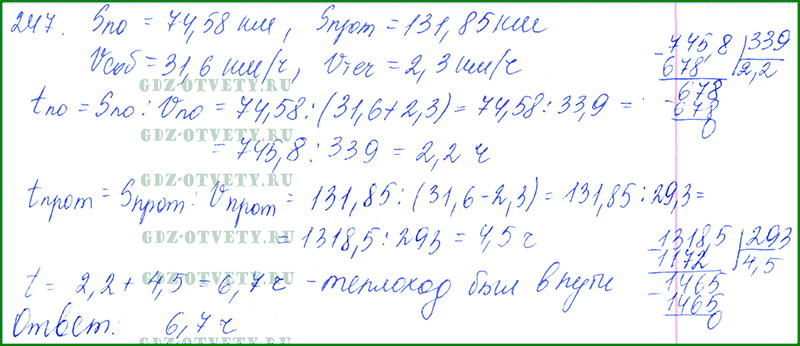 247. Sпо = 74,58 км, Sпрот = 131,85 км
Vсоб = 31,6 км/ч, Vтеч = 2,3 км/ч
GDZ-OTVETY.RU
tпо = Sпо : Vпо = 74,58 : (31,6 + 2,3) = 74,58 : 33,9 =
GDZ-OTVETY.RU
= 745,8 : 339 = 2,2 ч
GDZ-OTVETY.RU
tпрот = Sпрот : Vпрот = 131,85 : (31,6 - 2,3) = 131,85 : 29,3 =
GDZ-OTVETY.RU
= 1318,5 : 293 = 4,5 ч
GDZ-OTVETY.RU
t = 2,2 + 4,5 = 6,7 ч - теплоход был в пути
GDZ-OTVETY.RU
Ответ: 6,7 ч
GDZ-OTVETY.RU
- 745,8 | 339
678 | 2,2
- 678
678
0
- 1318,5 | 293
1172 | 4,5
- 1465
1465
0